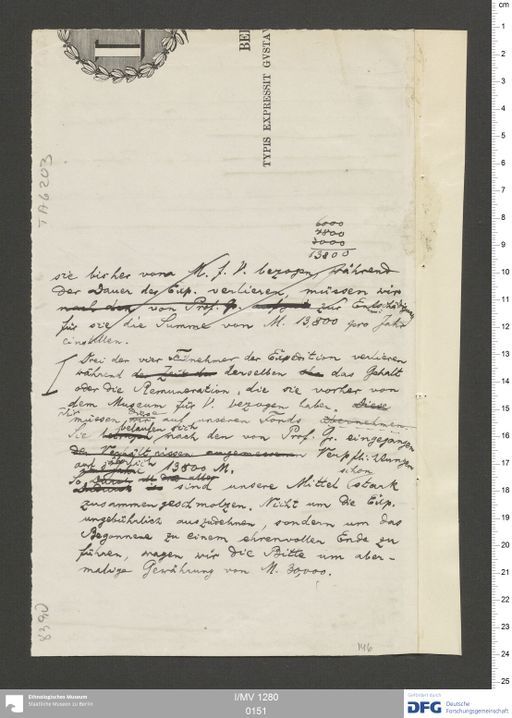 BEI
TYPIS EXPRESSIT GVSTAV
TA 6203
6000
4800
3000
13800
sie bisher vom M. f. V. bezogen, während
der Dauer der Exp. verlieren, müssen wir
nach den von Prof. Gr. zur Entschädigung
für sie die Summe von M. 13,800 pro Jahr
einstellen.
Drei der vier Teilnehmer der Expedition verlieren
während der Zeit der derselben das Gehalt
oder die Remuneration, die sie vorher von
dem Museum für V. bezogen haben. Diese
Wir müssen diese unseren Fonds übernehmen
Sie belaufen sich nach den von Prof. Gr. eingegangen
den Verhältnissen angemessenen Verpflichtungen
auf jährlich 13800 M.
So sind unsere Mittel schon stark
zusammengeschmolzen. Nicht um die Exp.
ungebührlich auszudehnen, sondern um das
Begonnene zu einem ehrenvollen Ende zu
führen, wagen wir die Bitte um aber-
malige Gewährung von M. 30,000.
146
cm
1
2
3
4
5
6
7
8
9
10
11
12
13
14
15
16
17
18
19
20
21
22
23
24
25
Ethnologisches Museum
Staatliche Museen zu Berlin
I/MV 1280
0151
Gefördert durch
DFG Deutsche
Forschungsgemeinschaft